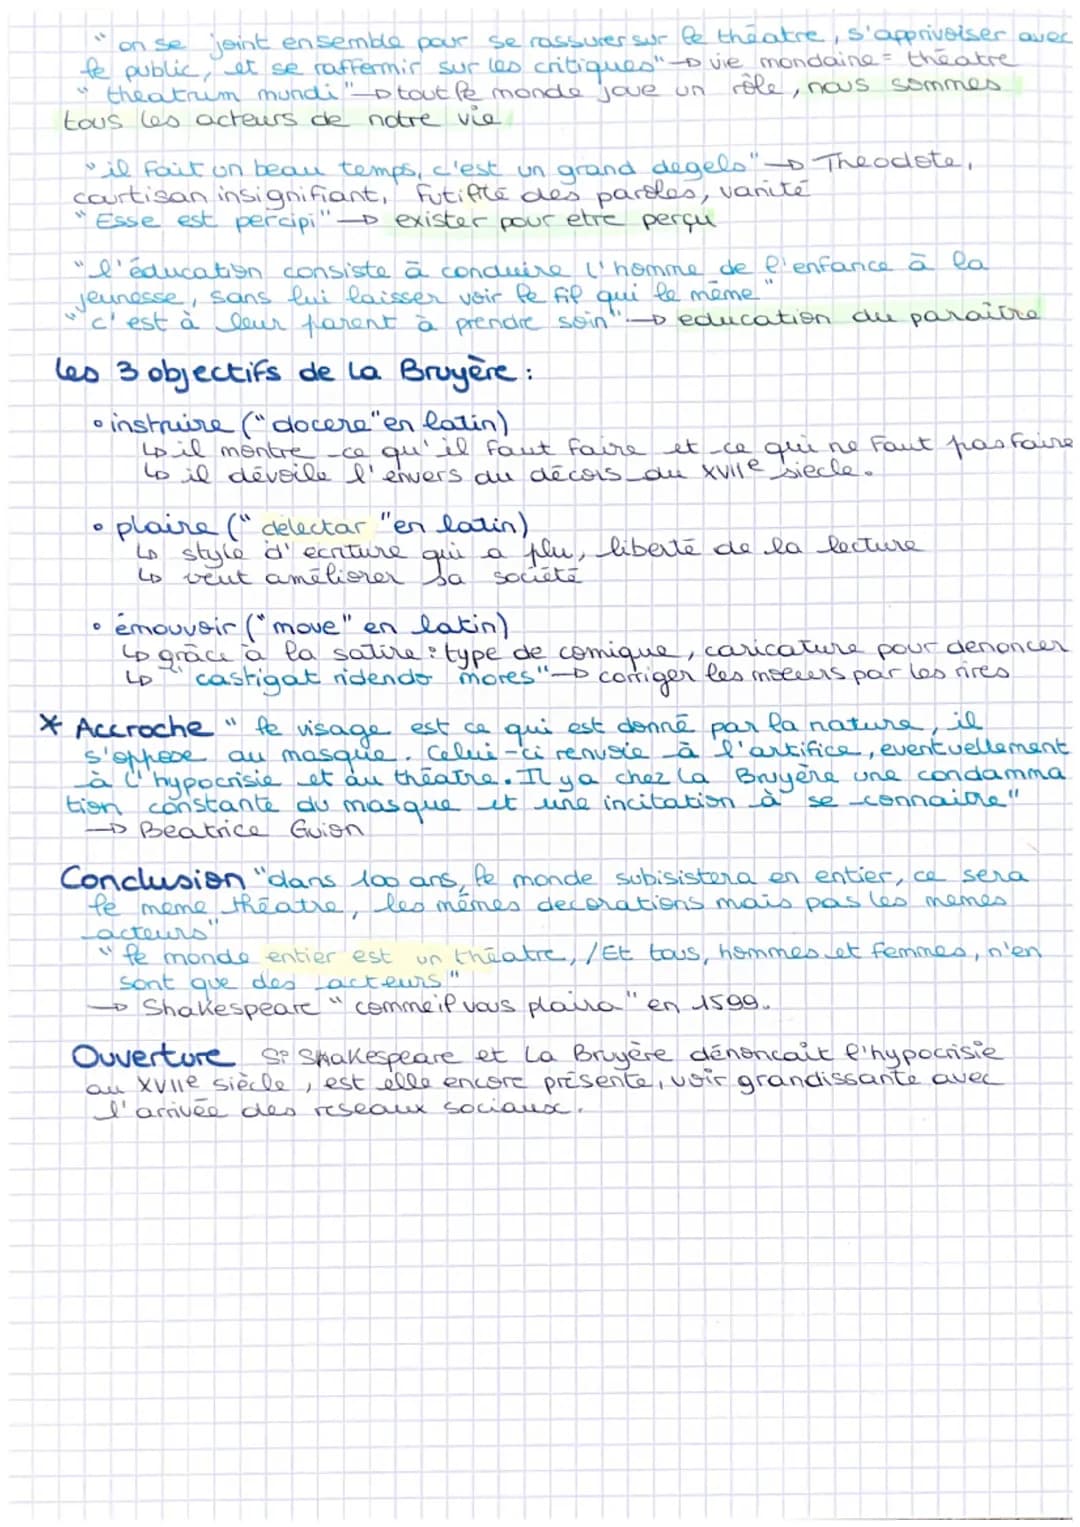 " on se joint ensemble pour se rassurer sur le théatre, s'apprivoiser avec
le public, et se raffermir sur les critiques" → vie mondaine = théatre
" theatrum mundi" → tout le monde joue un rôle, nous sommes
tous les acteurs de notre vie
"il fait un beau temps, c'est un grand degels" → Theodote,
courtisan insignifiant, futilité des paroles, vanité
"Esse est percipi" → exister pour etre perçu
"l'éducation consiste à conduire l'homme de l'enfance à la
jeunesse, sans lui laisser voir le fil qui le mène"
"c'est à leur parent à prendre soin" → education du paraître
les 3 objectifs de la Bruyère :
• instruire ("docere" en latin)
↳ il montre ce qu'il faut faire et ce qui ne faut pas faire
↳ il dévoile l'envers du décors du XVIIe siecle.
• plaire ("delectar" en latin)
↳ style d'écriture qui a plu, liberté de la lecture
↳ veut améliorer sa société
• émouvoir ("move" en latin)
↳ grâce à la satire : type de comique, caricature pour denoncer
↳ "castigat ridendo mores" → corriger les moeurs par les rires
* Accroche " le visage est ce qui est donné par la nature, il
s'oppose au masque. Celui-ci renvoie à l'artifice, eventuellement
à l'hypocrisie et au théatre. Il y a chez La Bruyère une condamma
tion constante du masque et une incitation à se connaitre"
→ Beatrice Guion
Conclusion "dans 100 ans, le monde subisistera en entier, ce sera
le meme théatre, les mêmes decorations mais pas les memes
acteurs"
"le monde entier est un théatre, / Et tous, hommes et femmes, n'en
sont que des acteurs"
→ Shakespeare "comme il vous plaira" en 1599.
Ouverture Si Shakespeare et La Bruyère dénoncait l'hypocrisie
au XVIIe siècle, est elle encore présente, voir grandissante avec
l'arrivée des reseaux sociaux.